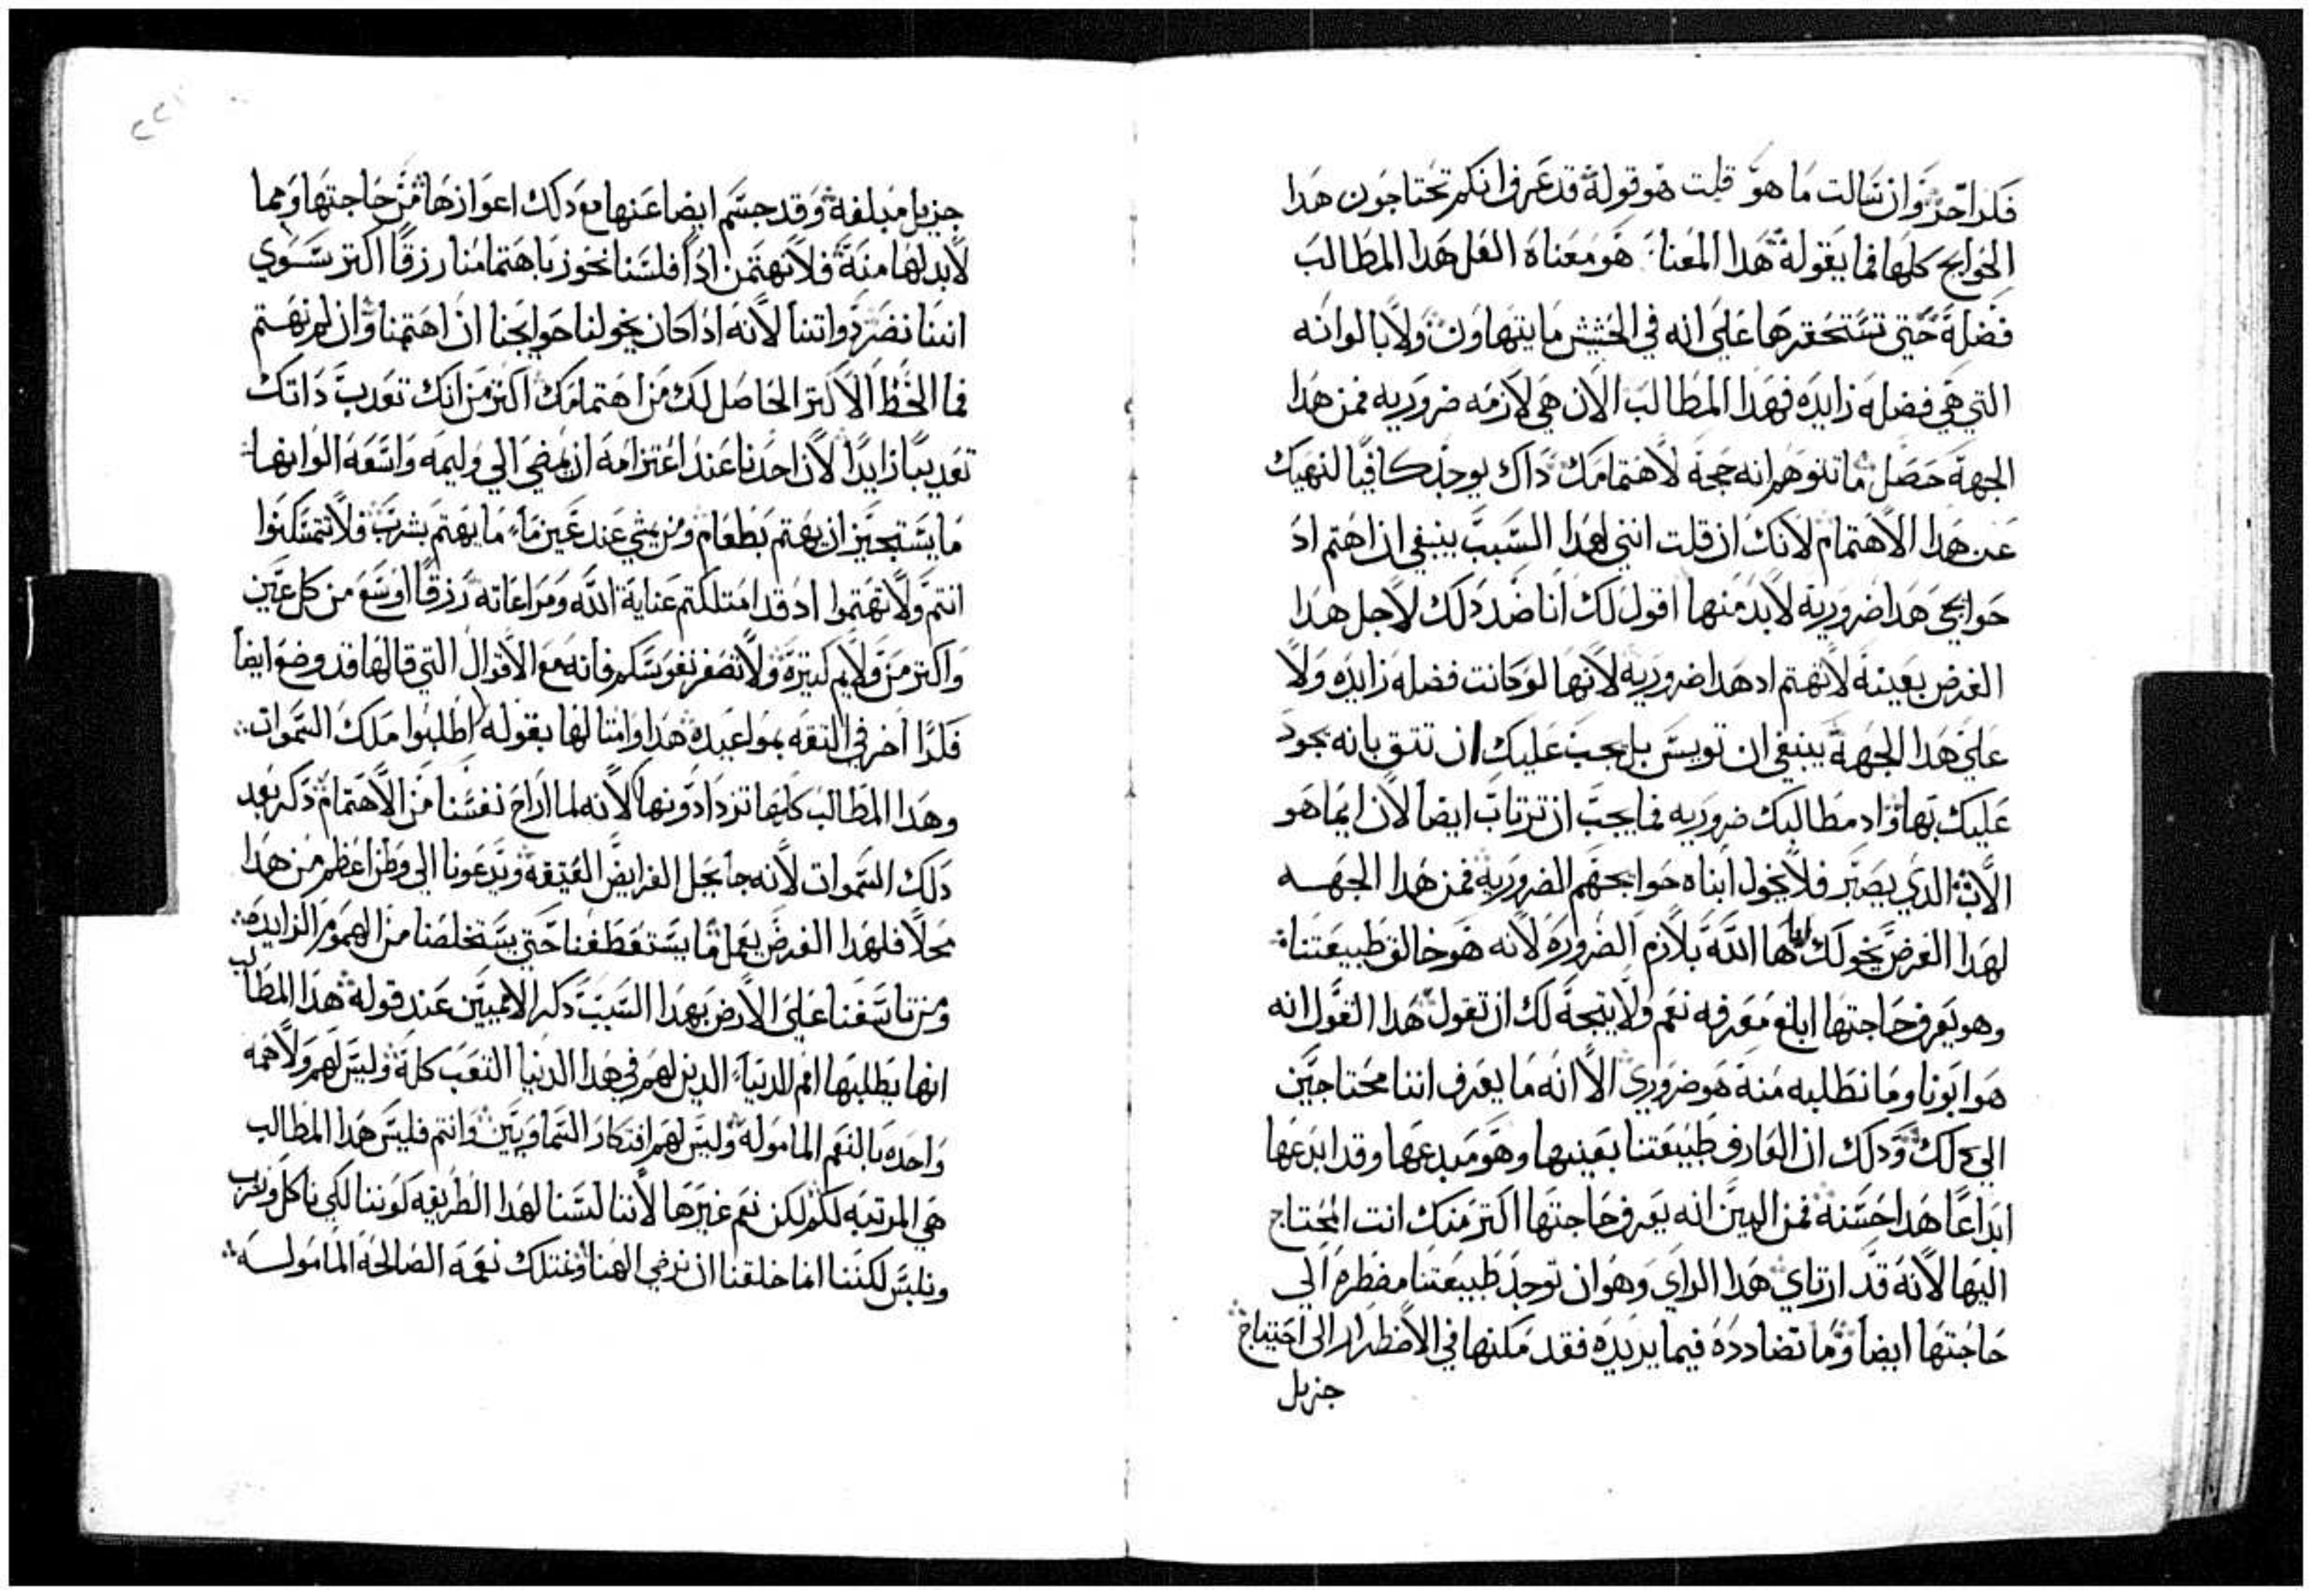 فكرا اخر وان سالت ما هو قلت هو قوله قد عرف انكم تحتاجون هدا
الحوايج كلها فما يقوله هدا المعنا هو معناه العل هدا المطالب
فضلة حتي تستحقرها علي انه في الحشيش ما يتهاون ولا بالوانه
التي هي فضله زايده فهدا المطالب الان هي لازمه ضروريه فمن هدا
الجهة حصل ما تتوهم انه حجة لاهتمامك داك يوجد كافيا لنهيك
عن هدا الاهتمام لانك ان قلت انني لهدا السبب ينبغي ان اهتم اد
حوايجي هدا ضرورية لابد منها اقول لك انا ضد دلك لاجل هدا
الغرض بعينة لا تهتم اد هدا ضروريه لانها لو كانت فضله زايده ولا
علي هدا الجهة ينبغي ان تويس بل يجب عليك ان تتق بانه يجود
عليك بها واد مطالبك ضروريه فما يجب ان ترتاب ايضا لان ايما هو
الاب الدي يصبر فلا يخول ابناه حوايجهم الضرورية فمن هدا الجهه
لهدا الغرض يخولك اياها الله بلازم الضرورة لانه هو خالق طبيعتنا
وهو يعرف حاجتها ابلغ معرفه نعم ولا يتجة لك ان تقول هدا القول انه
هو ابونا وما نطلبه منة هو ضروري الا انه ما يعرف اننا محتاجين
الي دلك ودلك ان العارف طبيعتنا بعينها وهو مبدعها وقد ابدعها
ابداعا هدا حسنة فمن البين انه يعرف حاجتها اكتر منك انت المحتاج
اليها لانه قد ارتاي هدا الراي وهو ان توجد طبيعتنا مضطره الي
حاجتها ايضا وما تضادده فيما يريده فقد مكنها في الاضطرار الي احتياج
جزيل
جزيل مبلغه وقد جسم ايضا عنها مع دلك اعوازها من حاجتها وبما
لابد لها منة فلا نهتمن ادا فلسنا نحوز باهتمامنا رزقا اكتر سوي
اننا نضر دواتنا لانه ادا كان يخولنا حوايجنا ان اهتمنا وان لم نهتم
فما الحظ الاكتر الحاصل لك من اهتمامك اكتر من انك تعدب داتك
تعديبا زايدا لان احدنا عند اعتزامه ان يمضي الي وليمه واسعه الوانها
ما يستجيز ان يهتم بطعام ومن يمشي عند عين ماء ما يهتم بشرب فلا تتمسكنوا
انتم ولا تهتموا اد قد امتلكتم عناية الله ومراعاته رزقا اوسع من كل عين
واكتر من ولايم كتيرة ولا تصغر نفوسكم فانه مع الاقوال التي قالها قد وضع ايضا
فكرا اخر في التقه بمواعيده هدا وامتالها بقوله اطلبوا ملك السموات
وهدا المطالب كلها تزدادونها لانه لما اراح نفسنا من الاهتمام دكر بعد
دلك السموات لانه جا يحل الفرايض العتيقة ويدعونا الي وطن اعظم من هدا
محلا فلهدا الغرض يعمل ما يستعطفنا حتي يستخلصنا من الهموم الزايده
ومن تاسفنا علي الارض بهدا السبب دكر الامميين عند قوله هدا المطالب
انها يطلبها امم الدنيا الدين لهم في هدا الدنيا التعب كلة وليس لهم ولا همه
واحده بالنعم الماموله وليس لهم افتكار السماويين وانتم فليس هدا المطالب
هي المرتبه لكم لكن نعم غيرها لاننا لسنا لهدا الطريقه كوننا لكي ناكل ونشرب
ونلبس لكننا انما خلقنا ان نرضي الهنا ونمتلك نعمه الصالحة الماموله